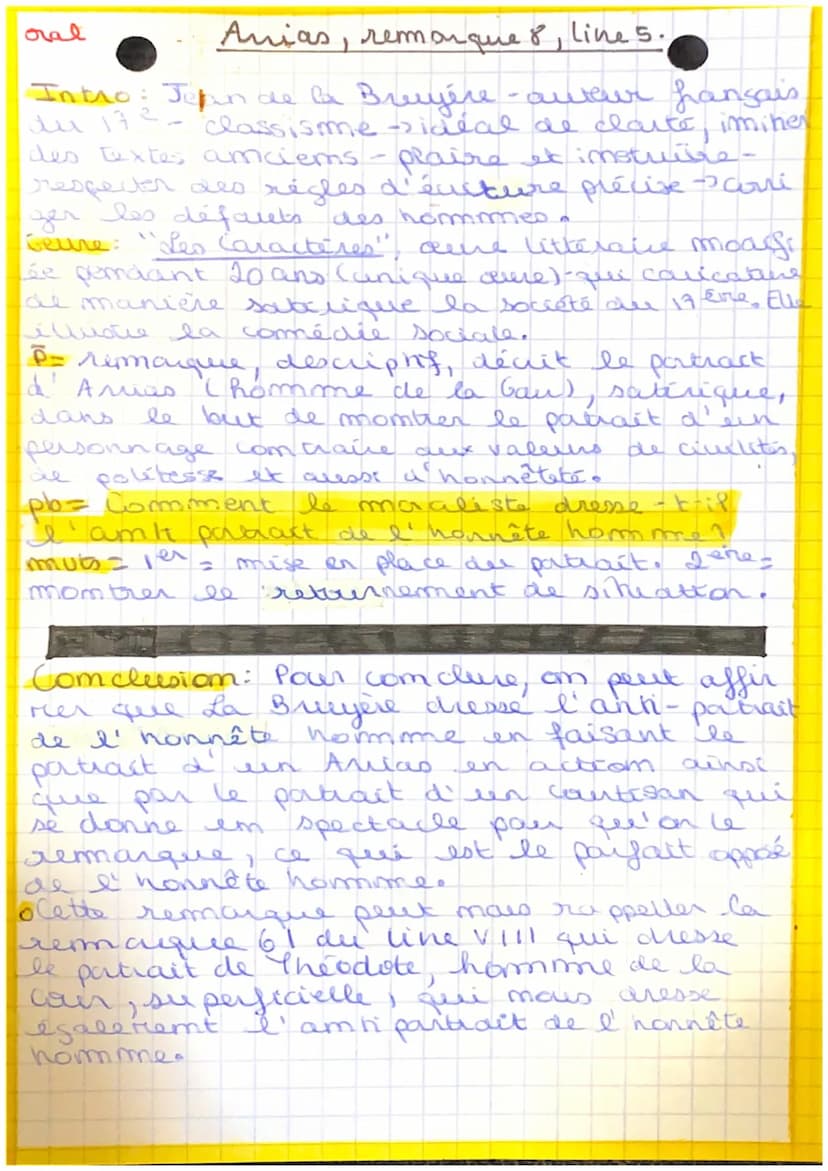 oral
Arrias, remarque 8, livre 5.
Intro: Jean de la Bruyère - auteur français
du 17e - classisme -> idéal de clarté, imiter
des textes anciens - plaire et instruire -
respecter des règles d'écriture précise -> corri
ger les défauts des hommes.
Œuvre: "Les Caractères", œuvre littéraire modifi
ée pendant 20 ans (unique œuvre) - qui caricature
de manière satirique la société du 17ème. Elle
illustre la comédie sociale.
P = remarque, descriptif, décrit le portrait
d'Arrias (homme de la Cour), satirique,
dans le but de montrer le portrait d'un
personnage contraire aux valeurs de civilités,
de politesse et aussi d'honnêteté.
pb = Comment le moraliste dresse-t-il
l'anti portrait de l'honnête homme?
mvts = 1er = mise en place du portrait. 2ème =
montrer le retournement de situation.
Conclusion: Pour conclure, on peut affir
mer que La Bruyère dresse l'anti-portrait
de l'honnête homme en faisant le
portrait d'un Arrias en action ainsi
que par le portrait d'un courtisan qui
se donne en spectacle pour qu'on le
remarque, ce qui est le parfait opposé
de l'honnête homme.
Cette remarque peut nous rappeller la
remarque 61 du livre VIII qui dresse
le portrait de Théodote, homme de la
cour, superficielle, qui nous dresse
également l'anti portrait de l'honnête
homme.